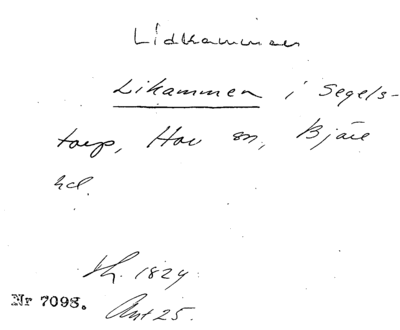 Lidkammen
Likammen i Segels-
torp, Hov sn, Bjäre
hd.
1829
Nr 7098.
Ant 25.